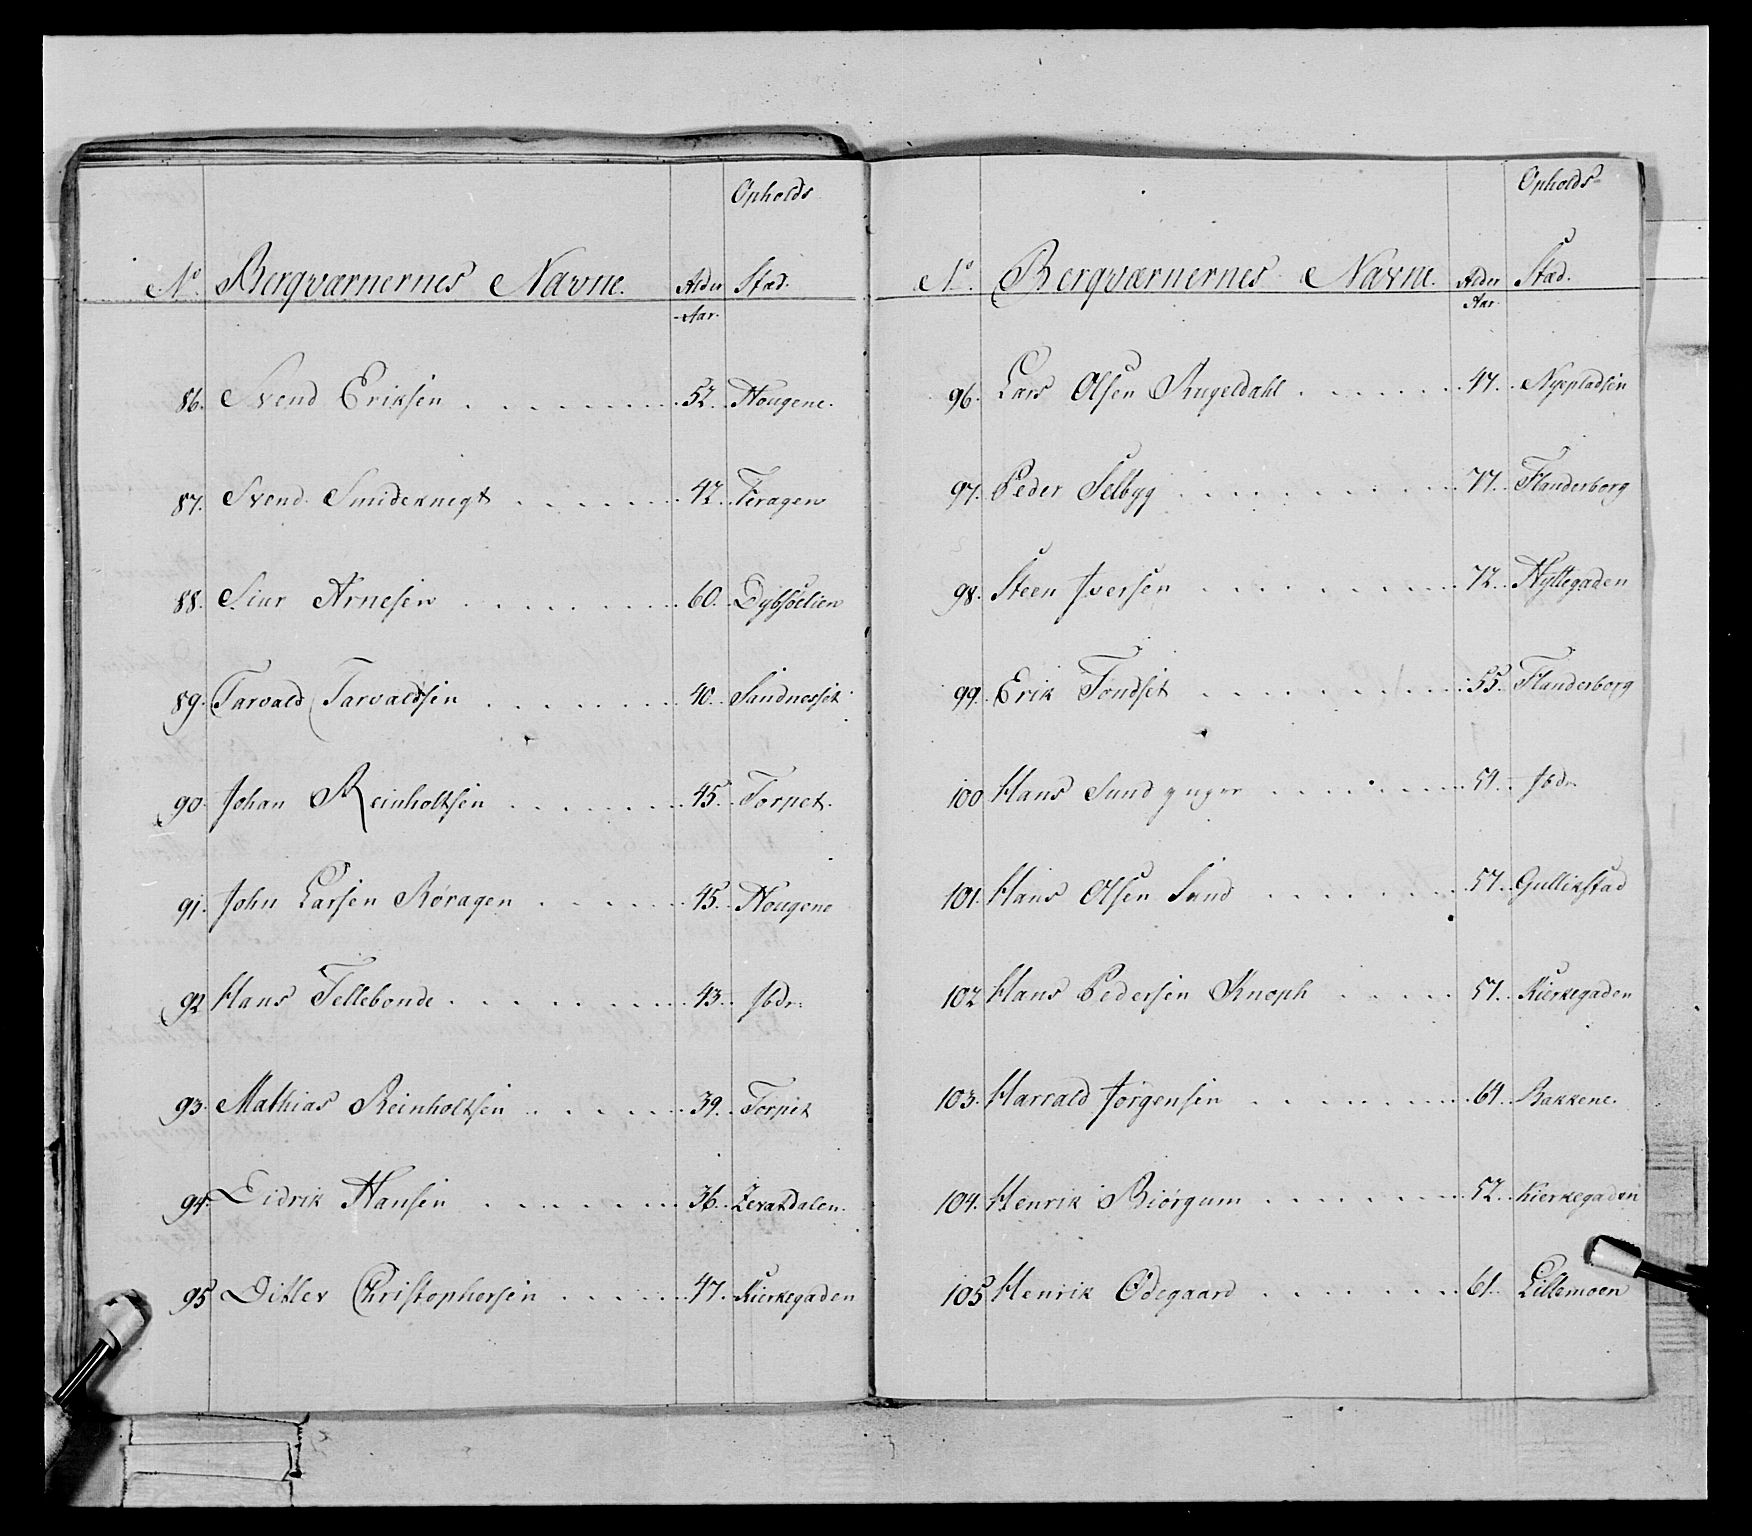 Opholds
No. Bergværnernes Navne. Alder Stæd.
Aar.
86. Svend Eriksen . . . . . . . 52. Hougene.
87. Svend Smideknegt . . . . . . 42. Feragen
88. Siur Arnesen . . . . . . . 60. Dybsöelien
89. Tarvald Tarvaldsen . . . . . . 40. Sundnesset
90. Johan Reinholtsen . . . . . . 45. Torpet.
91. John Larsen Røragen . . . . . 45. Hougene
92 Hans Tellebonde . . . . . . . 43. Ibdm:
93. Mathias Reinholtsen . . . . . 39. Torpet
94. Eidrik Hansen . . . . . . . 36. Zevatdalen.
95 Ditlev Christophersen . . . . . 47. Kierkegaden
Opholds
No. Bergværnernes Navne. Alder Stæd.
Aar.
96. Lars Olsen Rugeldahl . . . . . . 47. Nyepladsen
97. Peder Selbyg . . . . . . . . 77. Flanderborg
98. Steen Iversen . . . . . . . . 72. Hyttegaden
99. Erik Tøndset . . . . . . . . 55. Flanderborg
100 Hans Sund ynger . . . . . . . 59. Ibdm
101. Hans Olsen Sund . . . . . . . 57. Gullikstad
102 Hans Pedersen Knoph . . . . . 57. Kierkegaden
103. Harrald Jørgensen . . . . . . . 64. Bakkene.
104. Henrik Biørgum . . . . . . . 52. Kierkegaden
105 Henrik Ødegaard . . . . . . . 61. Lillemoen